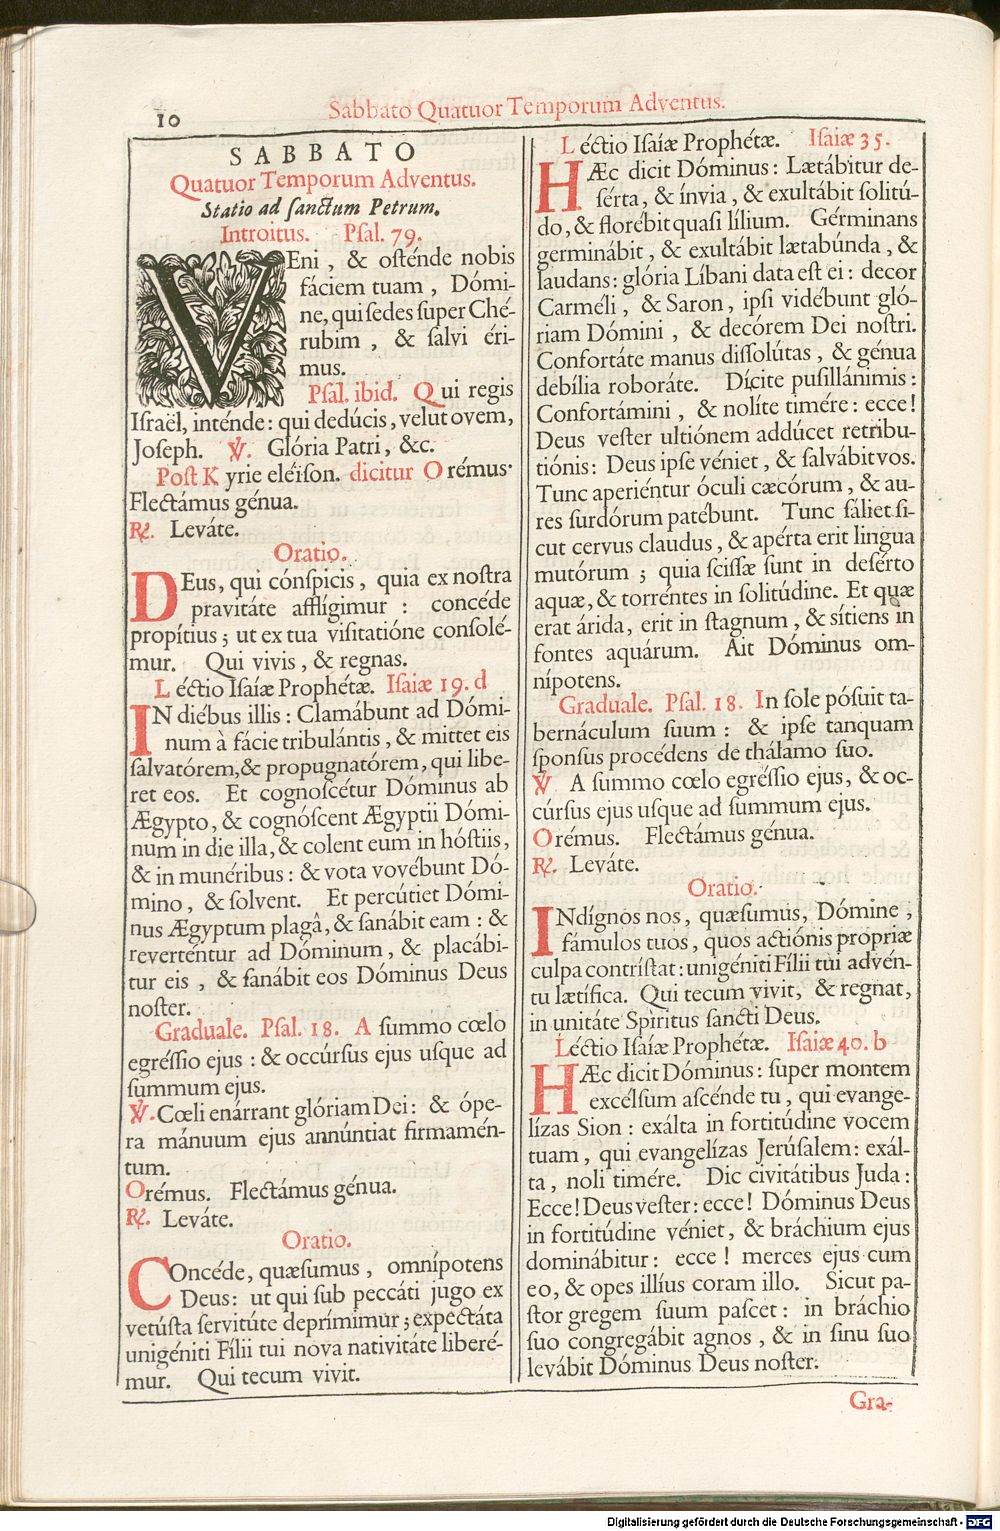 10
Sabbato Quatuor Temporum Adventus.
SABBATO
Quatuor Temporum Adventus.
Statio ad ſanctum Petrum.
Introitus. Pſal. 79.
VEni, & oſténde nobis
fáciem tuam, Dómi-
ne, qui ſedes ſuper Ché-
rubim, & ſalvi éri-
mus.
Pſal. ibid. Qui regis
Iſraël, inténde: qui dedúcis, velut ovem,
Joſeph. ℣. Glória Patri, &c.
Poſt Kyrie eléiſon. dicitur Orémus.
Flectámus génua.
℟. Leváte.
Oratio.
DEus, qui cónſpicis, quia ex noſtra
pravitáte afflígimur: concéde
propítius; ut ex tua viſitatióne conſolé-
mur. Qui vivis, & regnas.
Léctio Iſaíæ Prophétæ. Iſaiæ 19. d
IN diébus illis: Clamábunt ad Dómi-
num à fácie tribulántis, & mittet eis
ſalvatórem, & propugnatórem, qui libe-
ret eos. Et cognoſcétur Dóminus ab
Ægypto, & cognóſcent Ægyptii Dómi-
num in die illa, & colent eum in hóſtiis,
& in munéribus: & vota vovébunt Dó-
mino, & ſolvent. Et percútiet Dómi-
nus Ægyptum plagâ, & ſanábit eam: &
revertentur ad Dóminum, & placábi-
tur eis, & ſanábit eos Dóminus Deus
noſter.
Graduale. Pſal. 18. A ſummo cœlo
egréſſio ejus: & occúrſus ejus uſque ad
ſummum ejus.
℣. Cœli enárrant glóriam Dei: & ópe-
ra mánuum ejus annúntiat firmamén-
tum.
Orémus. Flectámus génua.
℟. Leváte.
Oratio.
COncéde, quæſumus, omnípotens
Deus: ut qui ſub peccáti jugo ex
vetúſta ſervitúte deprímimur; expectáta
unigéniti Fílii tui nova nativitáte liberé-
mur. Qui tecum vivit.
Léctio Iſaíæ Prophétæ. Iſaiæ 35.
HÆc dicit Dóminus: Lætábitur de-
ſérta, & ínvia, & exultábit ſolitú-
do, & florébit quaſi lílium. Gérminans
germinábit, & exultábit lætabúnda, &
laudans: glória Líbani data eſt ei: decor
Carméli, & Saron, ipſi vidébunt gló-
riam Dómini, & decórem Dei noſtri.
Confortáte manus diſſolútas, & génua
debília roboráte. Dícite puſillánimis:
Confortámini, & nolíte timére: ecce!
Deus veſter ultiónem addúcet retribu-
tiónis: Deus ipſe véniet, & ſalvábit vos.
Tunc aperiéntur óculi cæcórum, & au-
res ſurdórum patébunt. Tunc ſáliet ſi-
cut cervus claudus, & apérta erit lingua
mutórum; quia ſciſſæ ſunt in deſérto
aquæ, & torréntes in ſolitúdine. Et quæ
erat árida, erit in ſtagnum, & sítiens in
fontes aquárum. Ait Dóminus om-
nípotens.
Graduale. Pſal. 18. In ſole póſuit ta-
bernáculum ſuum: & ipſe tanquam
ſponſus procédens de thálamo ſuo.
℣ A ſummo cœlo egréſſio ejus, & oc-
cúrſus ejus uſque ad ſummum ejus.
Orémus. Flectámus génua.
℟. Leváte.
Oratio.
INdígnos nos, quæſumus, Dómine,
fámulos tuos, quos actiónis própriæ
culpa contríſtat: unigéniti Fílii tui advén-
tu lætífica. Qui tecum vivit, & regnat,
in unitáte Spíritus ſancti Deus.
Léctio Iſaíæ Prophétæ. Iſaiæ 40. b
HÆc dicit Dóminus: ſuper montem
excélſum aſcénde tu, qui evange-
lízas Sion: exálta in fortitúdine vocem
tuam, qui evangelízas Jerúſalem: exál-
ta, noli timére. Dic civitátibus Juda:
Ecce! Deus veſter: ecce! Dóminus Deus
in fortitúdine véniet, & bráchium ejus
dominábitur: ecce! merces ejus cum
eo, & opes illíus coram illo. Sicut pa-
ſtor gregem ſuum paſcet: in bráchio
ſuo congregábit agnos, & in ſinu ſuo
levábit Dóminus Deus noſter.
Gra-
Digitalisierung gefördert durch die Deutsche Forschungsgemeinschaft - DFG